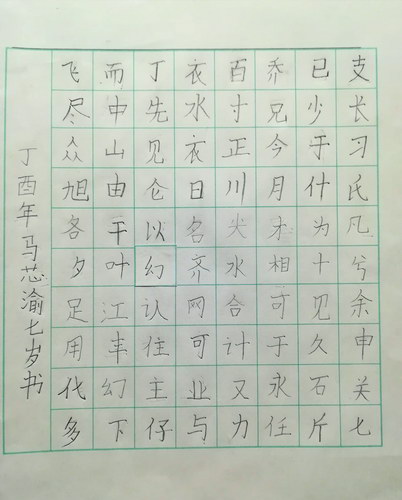 支长习氏凡兮余申关七
已少于什为十见久石斤
乔兄今月才相可于永任
百寸正川尖水合计又力
衣水衣日名齐网可业与
丁先见仑以幻认住主仔
而中山由干叶江丰幻下
飞尽众旭各夕足用代多
丁酉年马芯渝七岁书